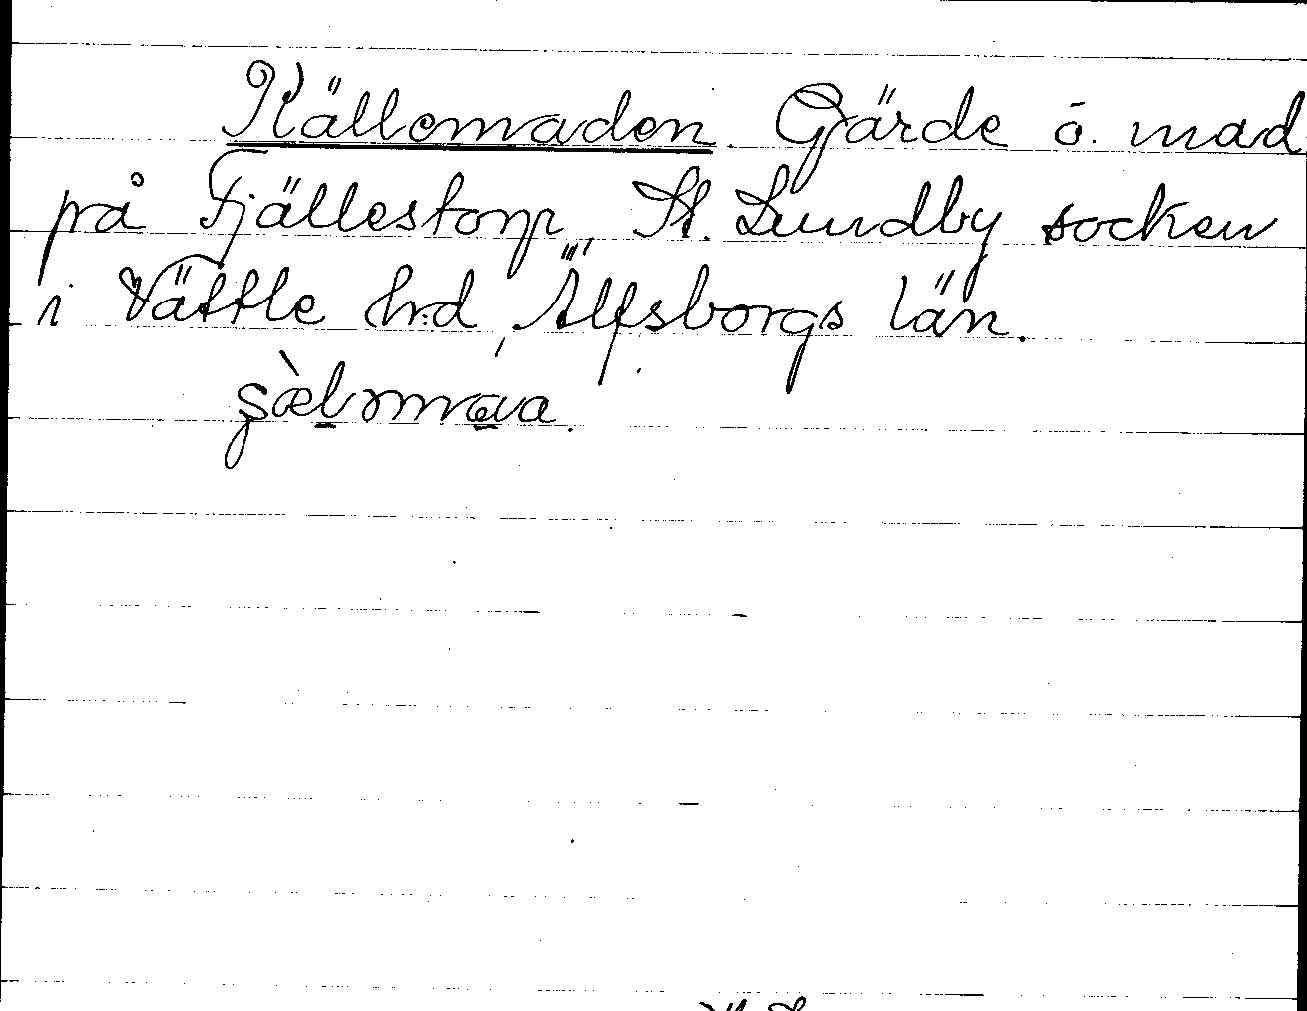 Källemaden. Gärde o. mad
på Fjällestorp, St. Lundby socken
i Vättle hd, Älfsborgs län.